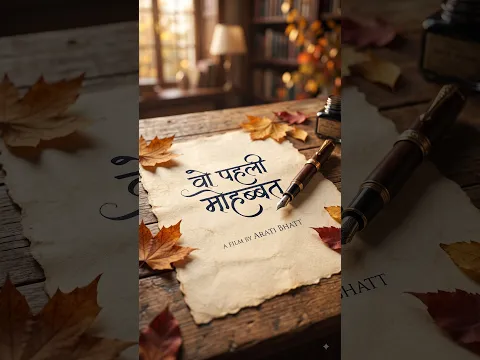 वो पहली
मोहब्बत
A FILM BY ARATI BHATT